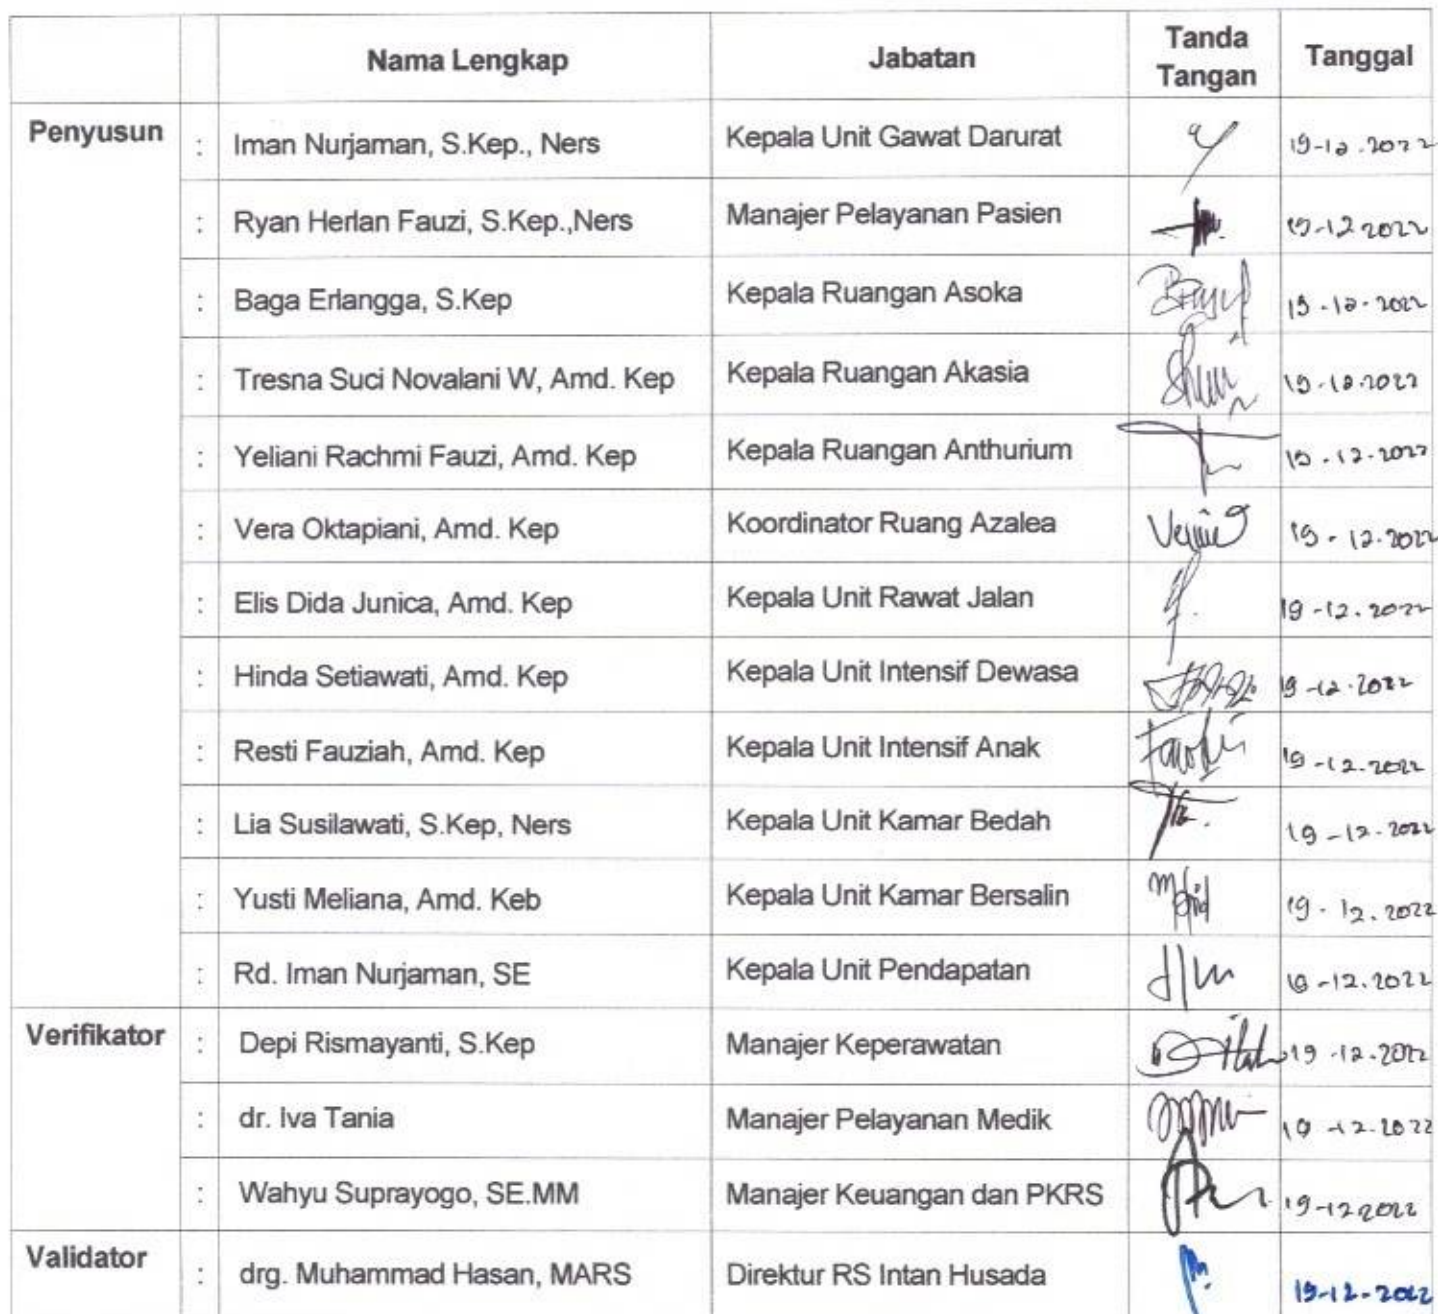 Nama Lengkap Jabatan Tanda Tangan Tanggal
Penyusun : Iman Nurjaman, S.Kep., Ners Kepala Unit Gawat Darurat 19-12.2022
: Ryan Herlan Fauzi, S.Kep.,Ners Manajer Pelayanan Pasien 19-12 2022
: Baga Erlangga, S.Kep Kepala Ruangan Asoka 19-12-2022
: Tresna Suci Novalani W, Amd. Kep Kepala Ruangan Akasia 19-12-2022
: Yeliani Rachmi Fauzi, Amd. Kep Kepala Ruangan Anthurium 19.12-2022
: Vera Oktapiani, Amd. Kep Koordinator Ruang Azalea 19-12-2022
: Elis Dida Junica, Amd. Kep Kepala Unit Rawat Jalan 19-12.2022
: Hinda Setiawati, Amd. Kep Kepala Unit Intensif Dewasa 19-12-2022
: Resti Fauziah, Amd. Kep Kepala Unit Intensif Anak 19-12.2022
: Lia Susilawati, S.Kep, Ners Kepala Unit Kamar Bedah 19-12-2022
: Yusti Meliana, Amd. Keb Kepala Unit Kamar Bersalin 19-12.2022
: Rd. Iman Nurjaman, SE Kepala Unit Pendapatan 19-12.2022
Verifikator : Depi Rismayanti, S.Kep Manajer Keperawatan 19-12-2022
: dr. Iva Tania Manajer Pelayanan Medik 19-12-2022
: Wahyu Suprayogo, SE.MM Manajer Keuangan dan PKRS 19-12 2022
Validator : drg. Muhammad Hasan, MARS Direktur RS Intan Husada 19-12-2022